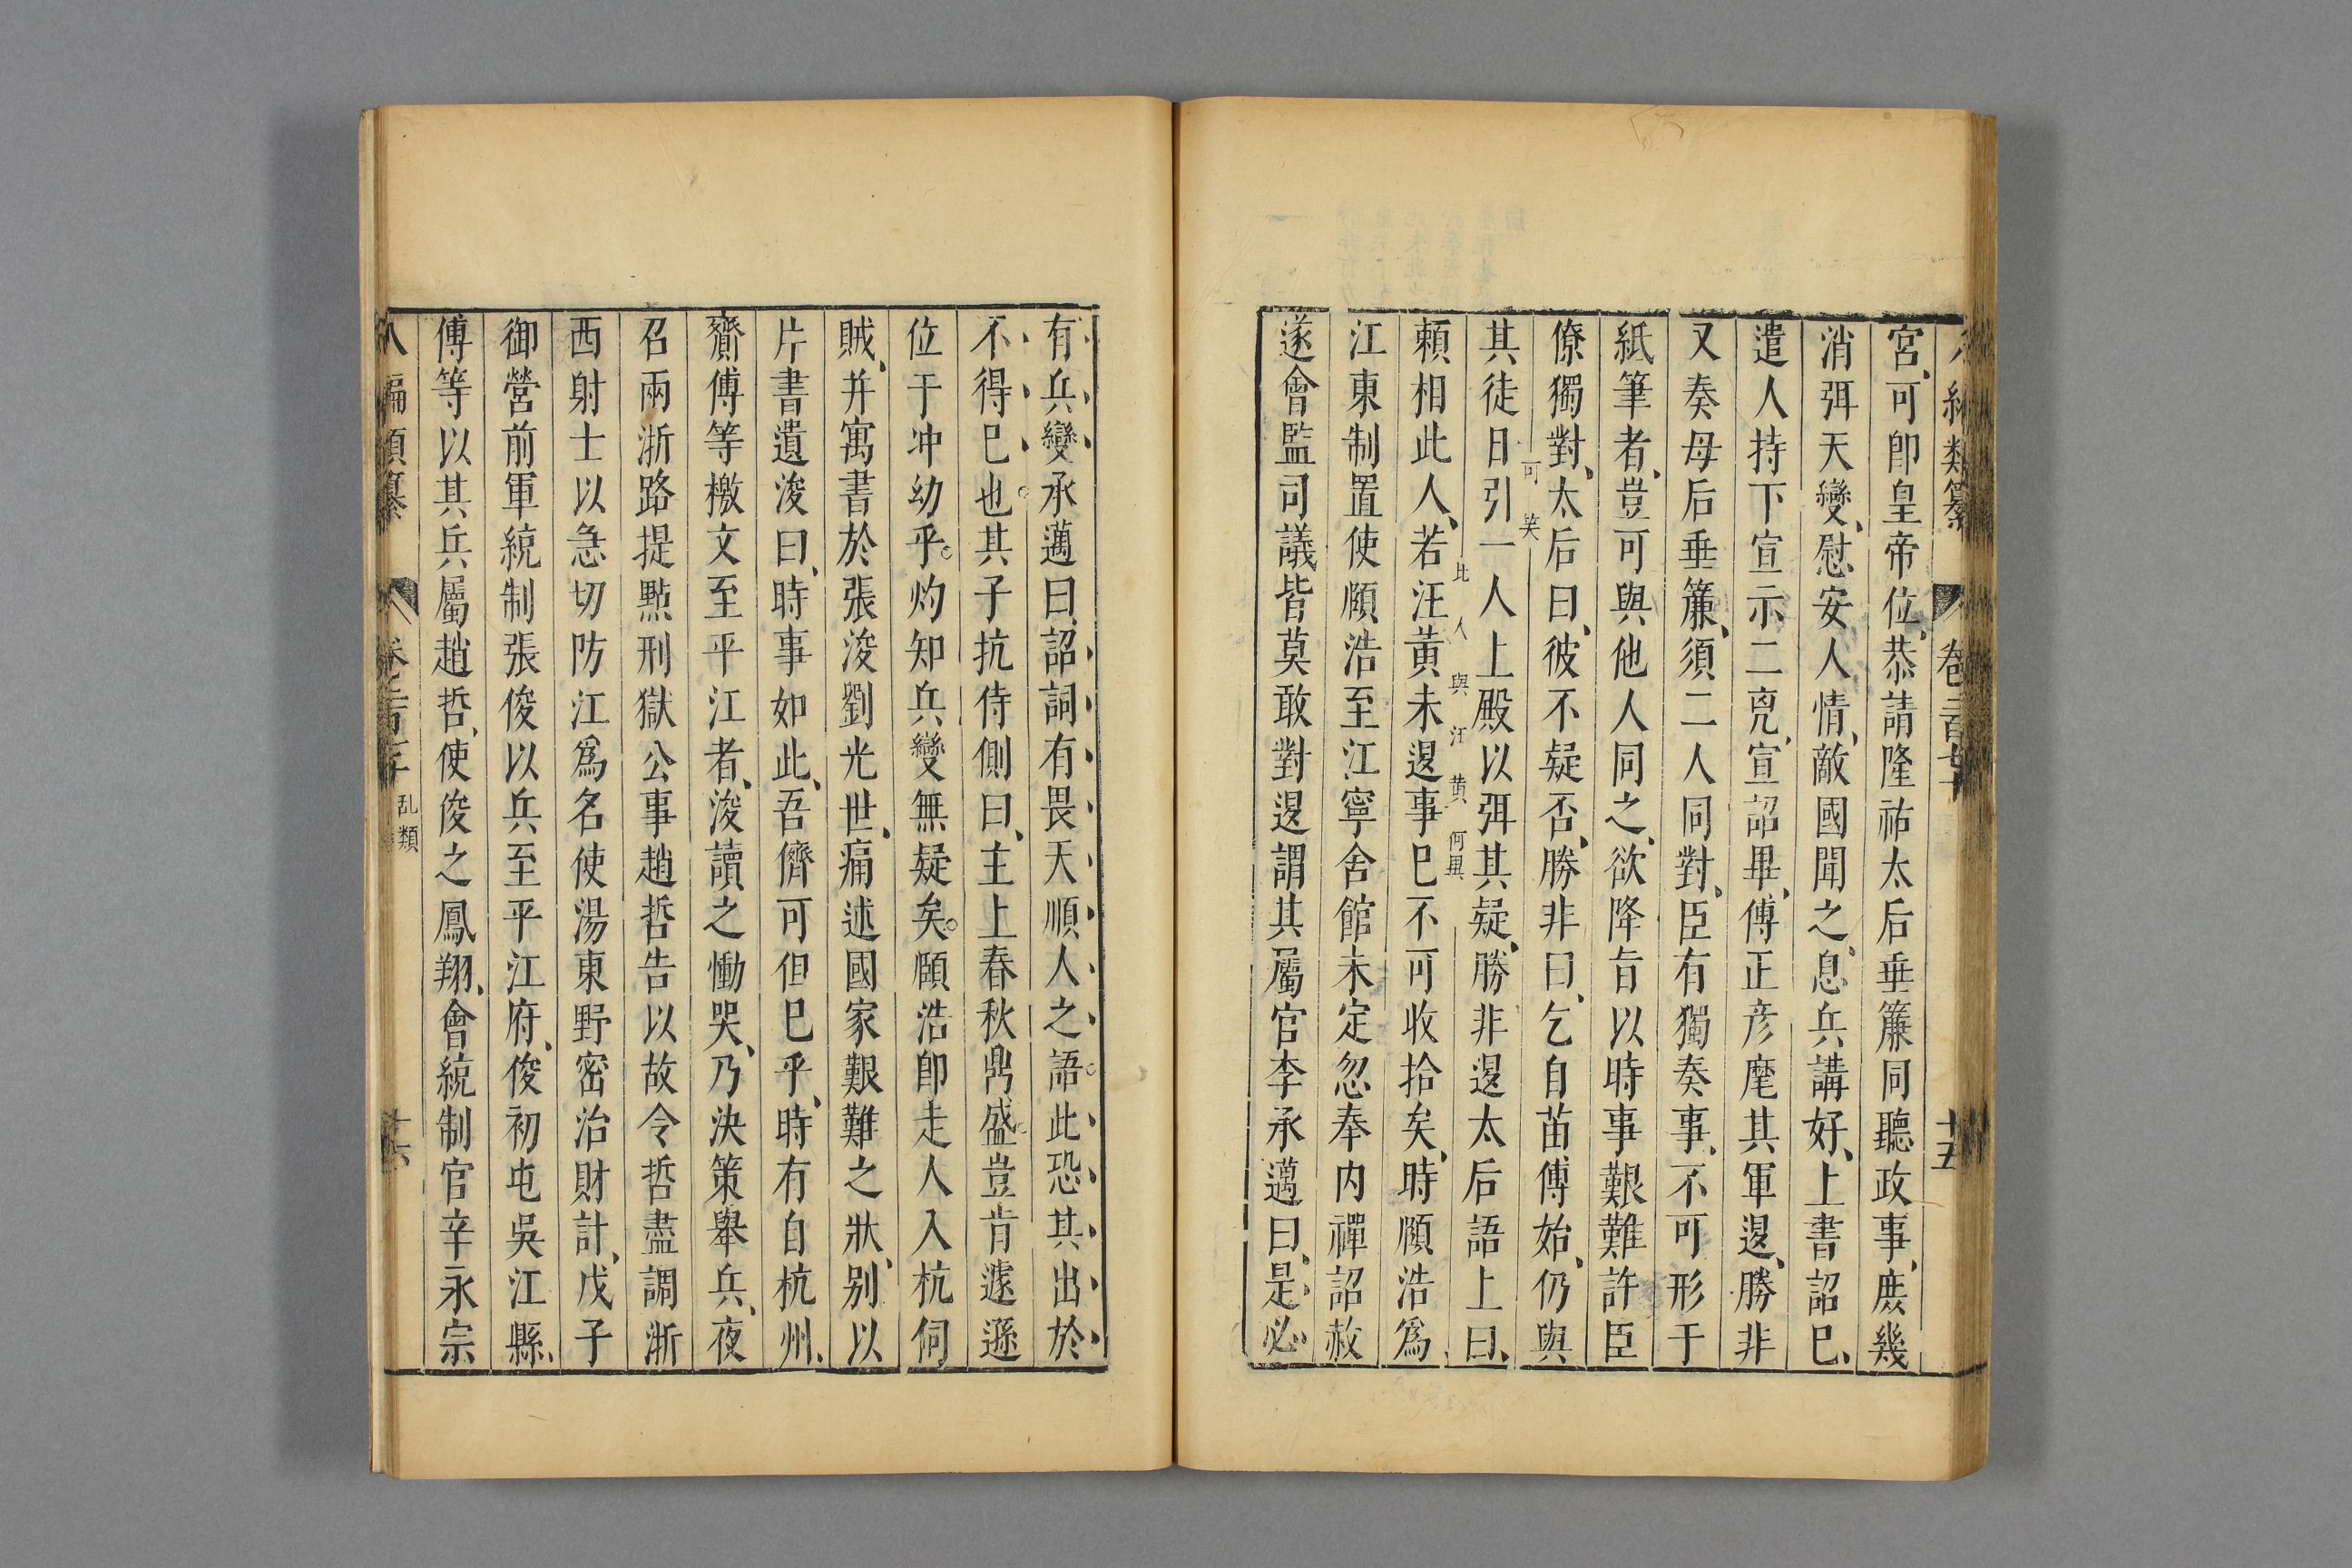 編類纂 卷二百七十 十五
宮、可卽皇帝位、恭請隆祐太后垂簾同聽政事、庶幾
消弭天變、慰安人情、敵國聞之、息兵講好、上書詔巳、
遣人持下宣示二兇、宣詔畢、傅正彦麾其軍退、勝非
又奏母后垂簾、須二人同對、臣有獨奏事、不可形于
紙筆者、豈可與他人同之、欲降旨以時事艱難許臣
僚獨對、太后曰、彼不疑否、勝非曰、乞自苗傅始、仍與
可笑
其徒日引一人上殿以弭其疑、勝非退太后語上曰、
賴相此人、若汪黃未退事巳不可收拾矣、時頤浩爲
比人與汪黃何異
江東制置使頤浩至江寧舍館未定忽奉内禪詔赦
遂會監司議皆莫敢對退謂其屬官李承邁曰、是必
有兵變承邁曰、詔詞有畏天順人之語此恐其出於
不得巳也其子抗侍側曰、主上春秋鼎盛豈肯遽遜
位于冲幼乎灼知兵變無疑矣頤浩卽走人入杭伺
賊、并寓書於張浚劉光世、痛述國家艱難之狀、别以
片書遺浚曰、時事如此、吾儕可但巳乎、時有自杭州、
齎傅等檄文至平江者、浚讀之慟哭、乃決策舉兵、夜
召兩浙路提㸃刑獄公事趙哲告以故令哲盡調浙
西射士以急切防江爲名使湯東野密治財計、戊子
御營前軍統制張俊以兵至平江府、俊初屯吳江縣、
傅等以其兵屬趙哲、使俊之鳳翔、會統制官辛永宗
八編類纂 卷二百七十 乱類 十六